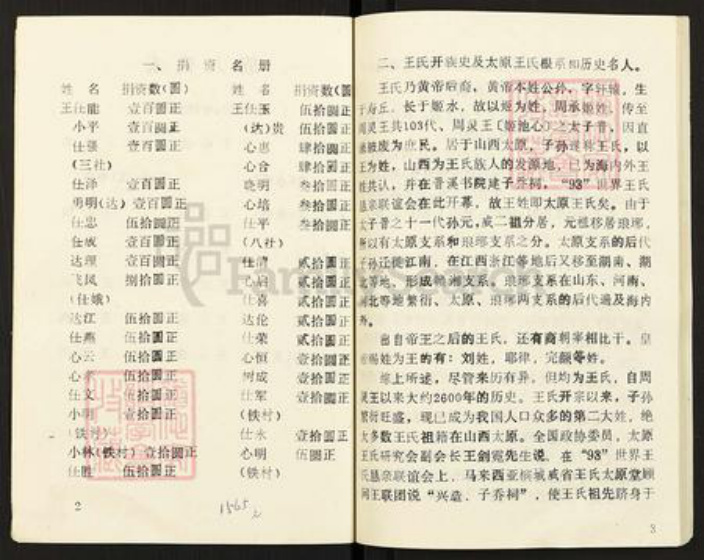 一、捐资名册
姓 名 捐资数(圆) 姓 名 捐资数(圆
王仕能 壹百圆正 王仕玉 伍拾圆正
小平 壹百圆正 (达)贵 伍拾圆正
仕强 壹百圆正 心忠 肆拾圆正
(三社) 心合 肆拾圆正
仕泽 壹百圆正 晓明 叁拾圆正
勇明(达) 壹百圆正 心培 叁拾圆正
仕忠 伍拾圆正 仕平 叁拾圆正
仕成 壹百圆正 (八社)
达理 壹百圆正 仕清 贰拾圆正
飞凤 捌拾圆正 心启 贰拾圆正
(仕娥) 仕喜 贰拾圆正
达江 伍拾圆正 达伦 贰拾圆正
仕燕 伍拾圆正 仕荣 贰拾圆正
心云 伍拾圆正 心恒 壹拾圆正
心 伍拾圆正 树成 壹拾圆正
仕文 伍拾圆正 仕军 壹拾圆正
小明 壹拾圆正 (铁村)
(铁村) 仕永 壹拾圆正
小林(铁村) 壹拾圆正 心明 伍圆正
仕胜 伍拾圆正 (铁村)
2
1565
二、王氏开族史及太原王氏根系和历史名人。
王氏乃黄帝后裔，黄帝本姓公孙，字轩辕，生
于寿丘，长于姬水，故以姬为姓，周承姬姓，传至
周灵王共103代、周灵王〔姬池心〕之太子晋，因直
谏被废为庶民。居于山西太原，子孙遂称王氏，以
王为姓，山西为王氏族人的发源地，已为海内外王
姓共认，并在晋溪书院建子乔祠，“93”世界王氏
恳亲联谊会在此开幕，故王姓即太原王氏矣。由于
太子晋之十一代孙元，威二祖分居，元祖移居琅琊，
所以有太原支系和琅琊支系之分。太原支系的后代
子孙迁徙江南，在江西浙江等地后又移至湖南、湖
北等地，形成神湘支系、琅琊支系在山东、河南、
湖北等地繁衍、太原、琅琊两支系的后代遍及海内
外。
出自帝王之后的王氏，还有商朝宰相比干。皇
帝赐姓为王的有：刘姓，耶律，完颜等姓。
综上所述，尽管来历有异，但均为王氏，自周
灵王以来大约2600年的历史。王氏开宗以来，子孙
繁衍旺盛，现已成为我国人口众多的第二大姓，绝
大多数王氏祖籍在山西太原。全国政协委员，太原
王氏研究会副会长王剑霓先生说，在“93”世界王
氏恳亲联谊会上，马来西亚槟城威省王氏太原堂顾
问王联团说“兴造，子乔祠”，使王氏祖先跻身于
3
FamilySearch